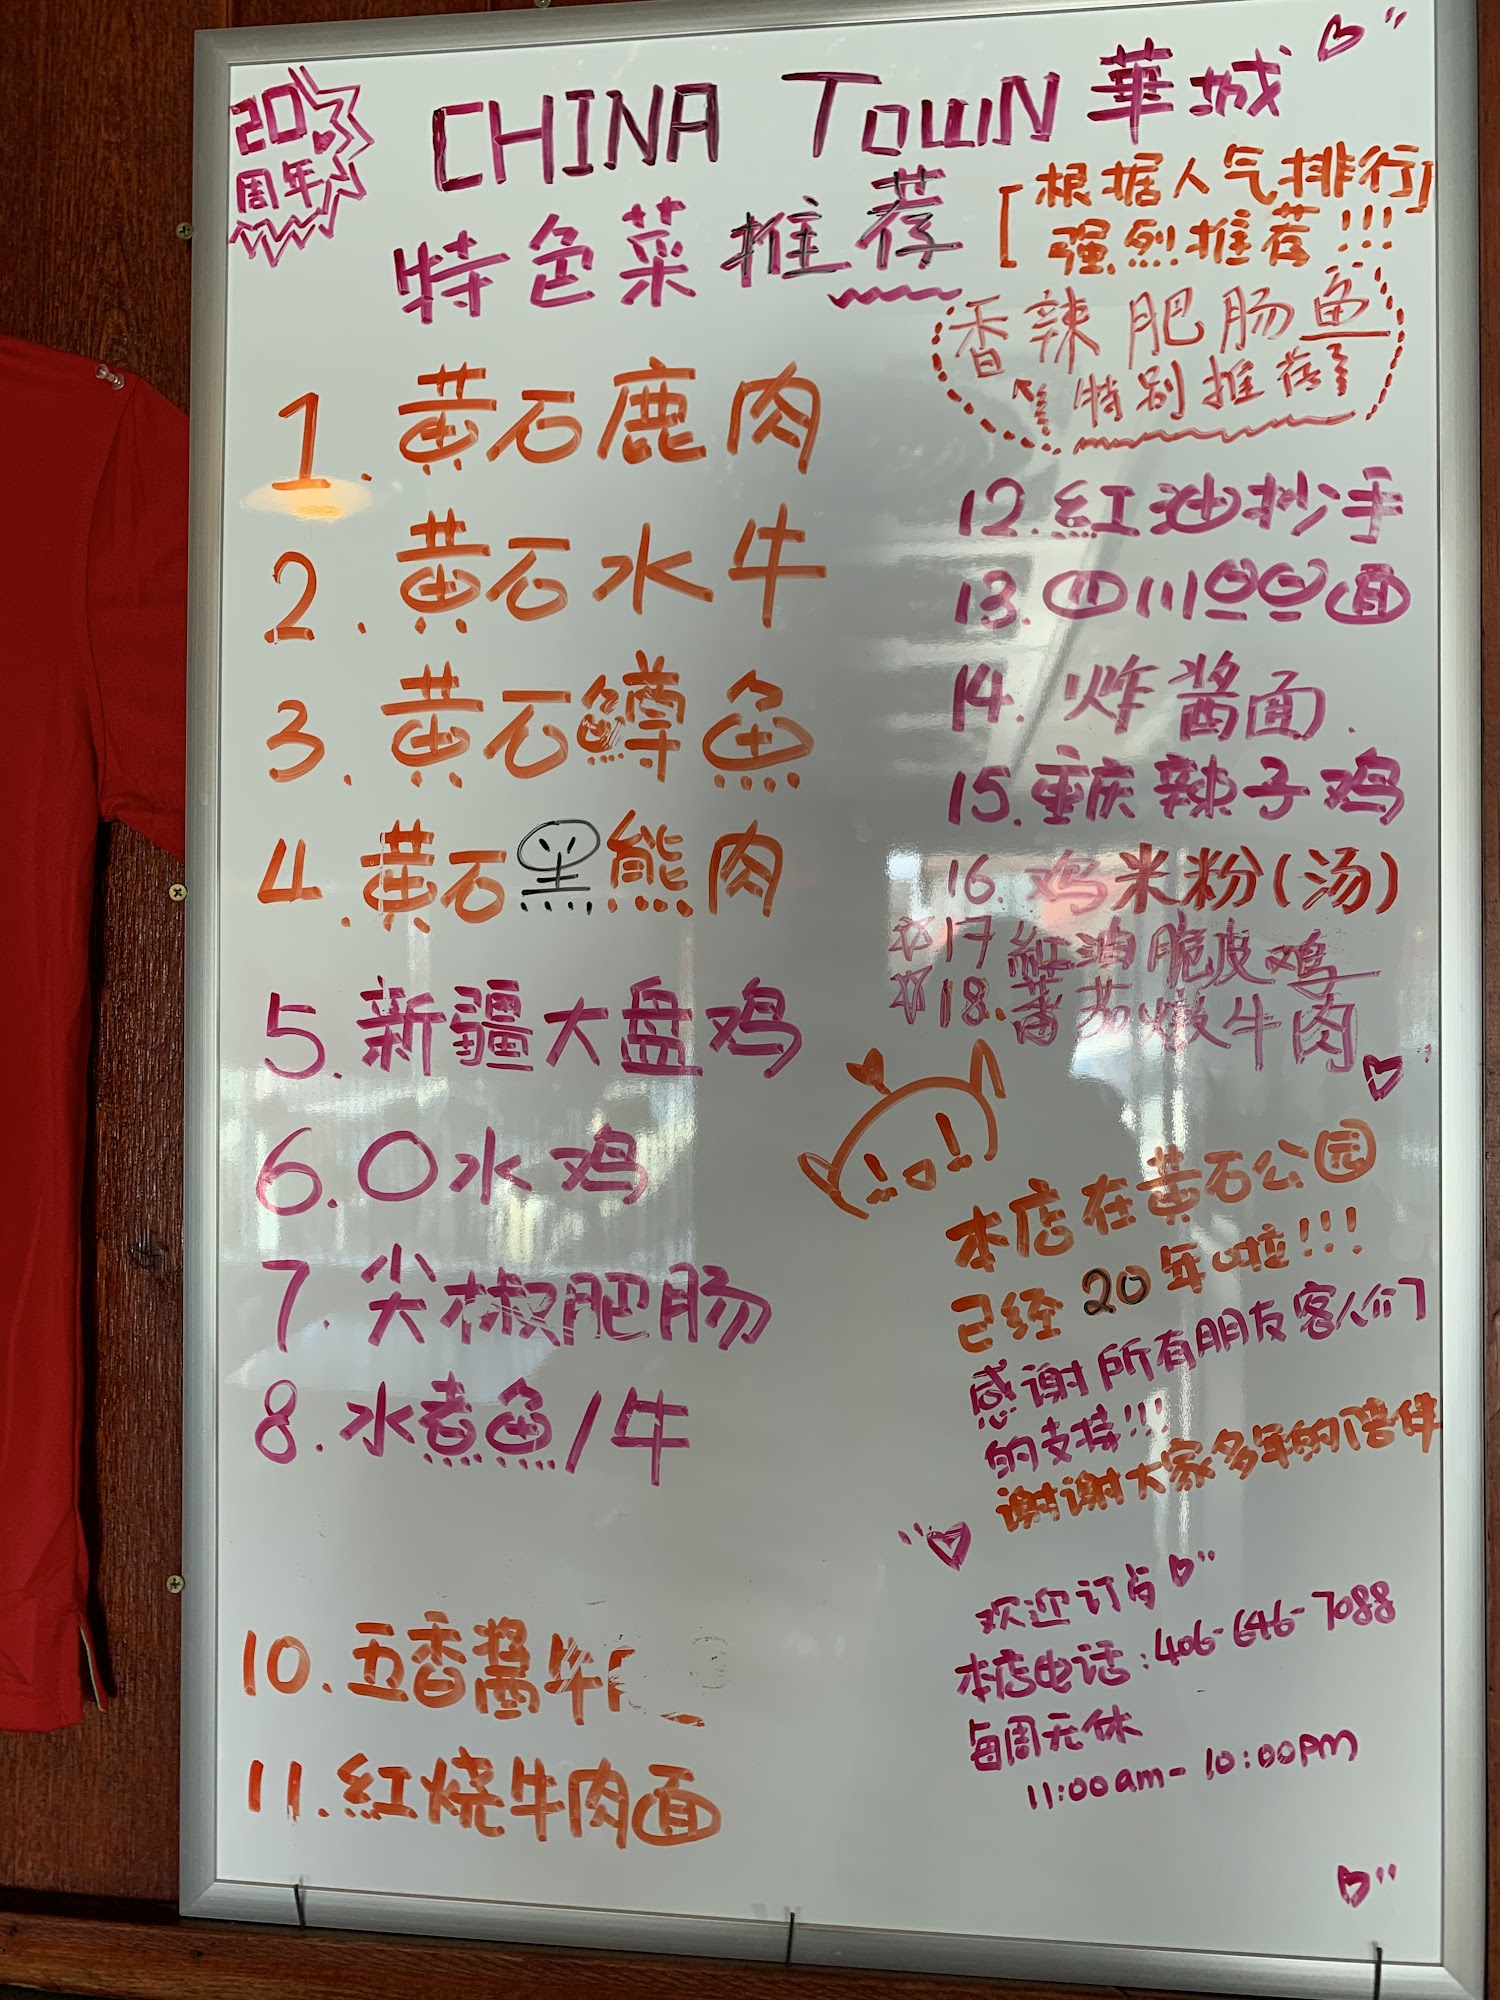 20
周年
CHINA TOWN 華城
特色菜推荐
[根据人气排行]
强烈推荐!!!
香辣肥肠鱼
特别推荐
1. 黄石鹿肉
2. 黄石水牛
3. 黄石鳟鱼
4. 黄石黑熊肉
5. 新疆大盘鸡
6. O水鸡
7. 尖椒肥肠
8. 水煮鱼/牛
10. 五香酱牛
11. 紅烧牛肉面
12. 紅油抄手
13. 四川旦旦面
14. 炸酱面
15. 重庆辣子鸡
16. 鸡米粉(汤)
☆17 紅油脆皮鸡
☆18. 蕃茄燉牛肉
本店在黄石公园
已经20年啦!!!
感谢所有朋友客人们
的支持!!!
谢谢大家多年的陪伴
欢迎订占
本店电话:406-646-7088
每周无休
11:00am-10:00pm